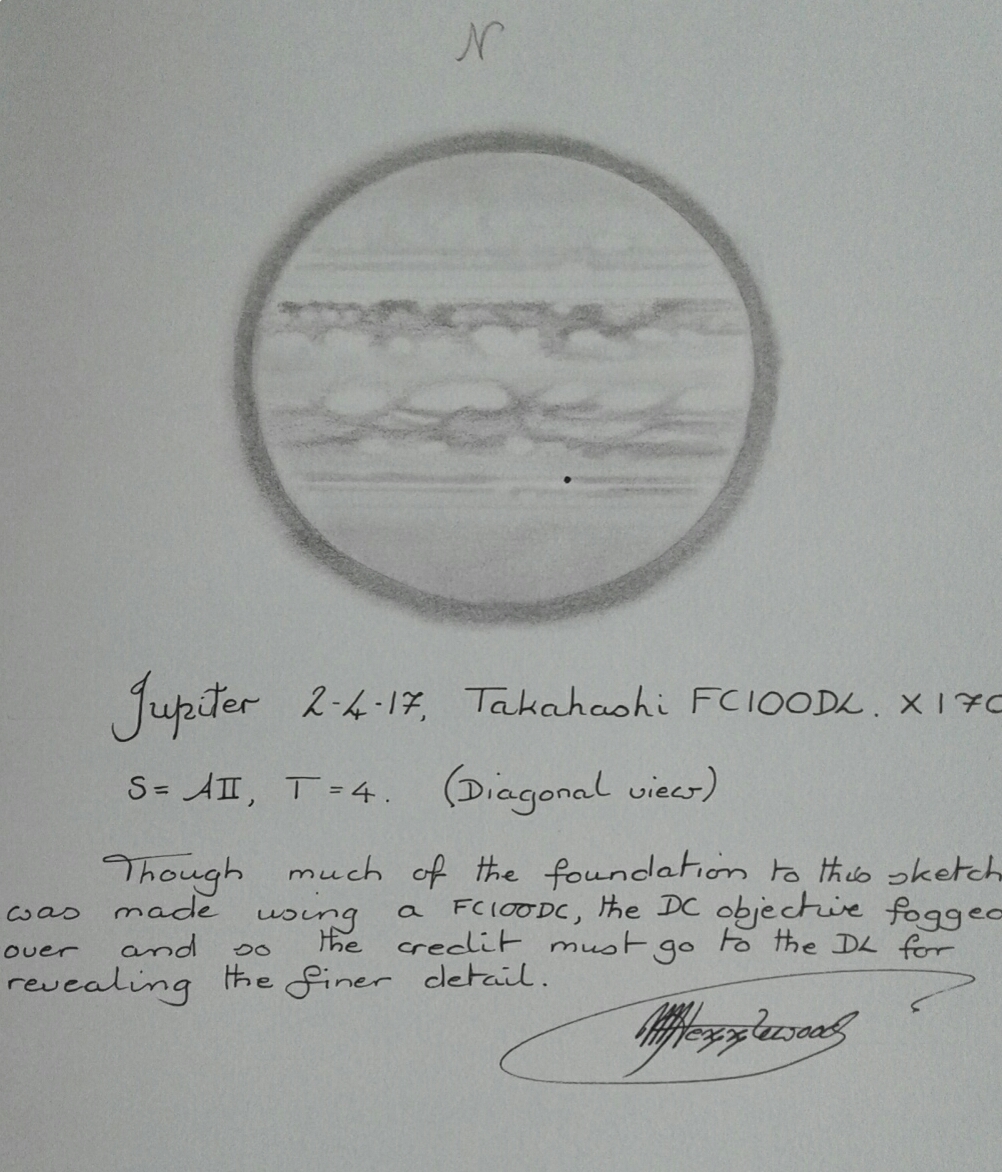 N
Jupiter 2-4-17, Takahashi FC100DL. X170
S = AII, T = 4. (Diagonal view)
Though much of the foundation to this sketch
was made using a FC100DC, the DC objective fogged
over and so the credit must go to the DL for
revealing the finer detail.